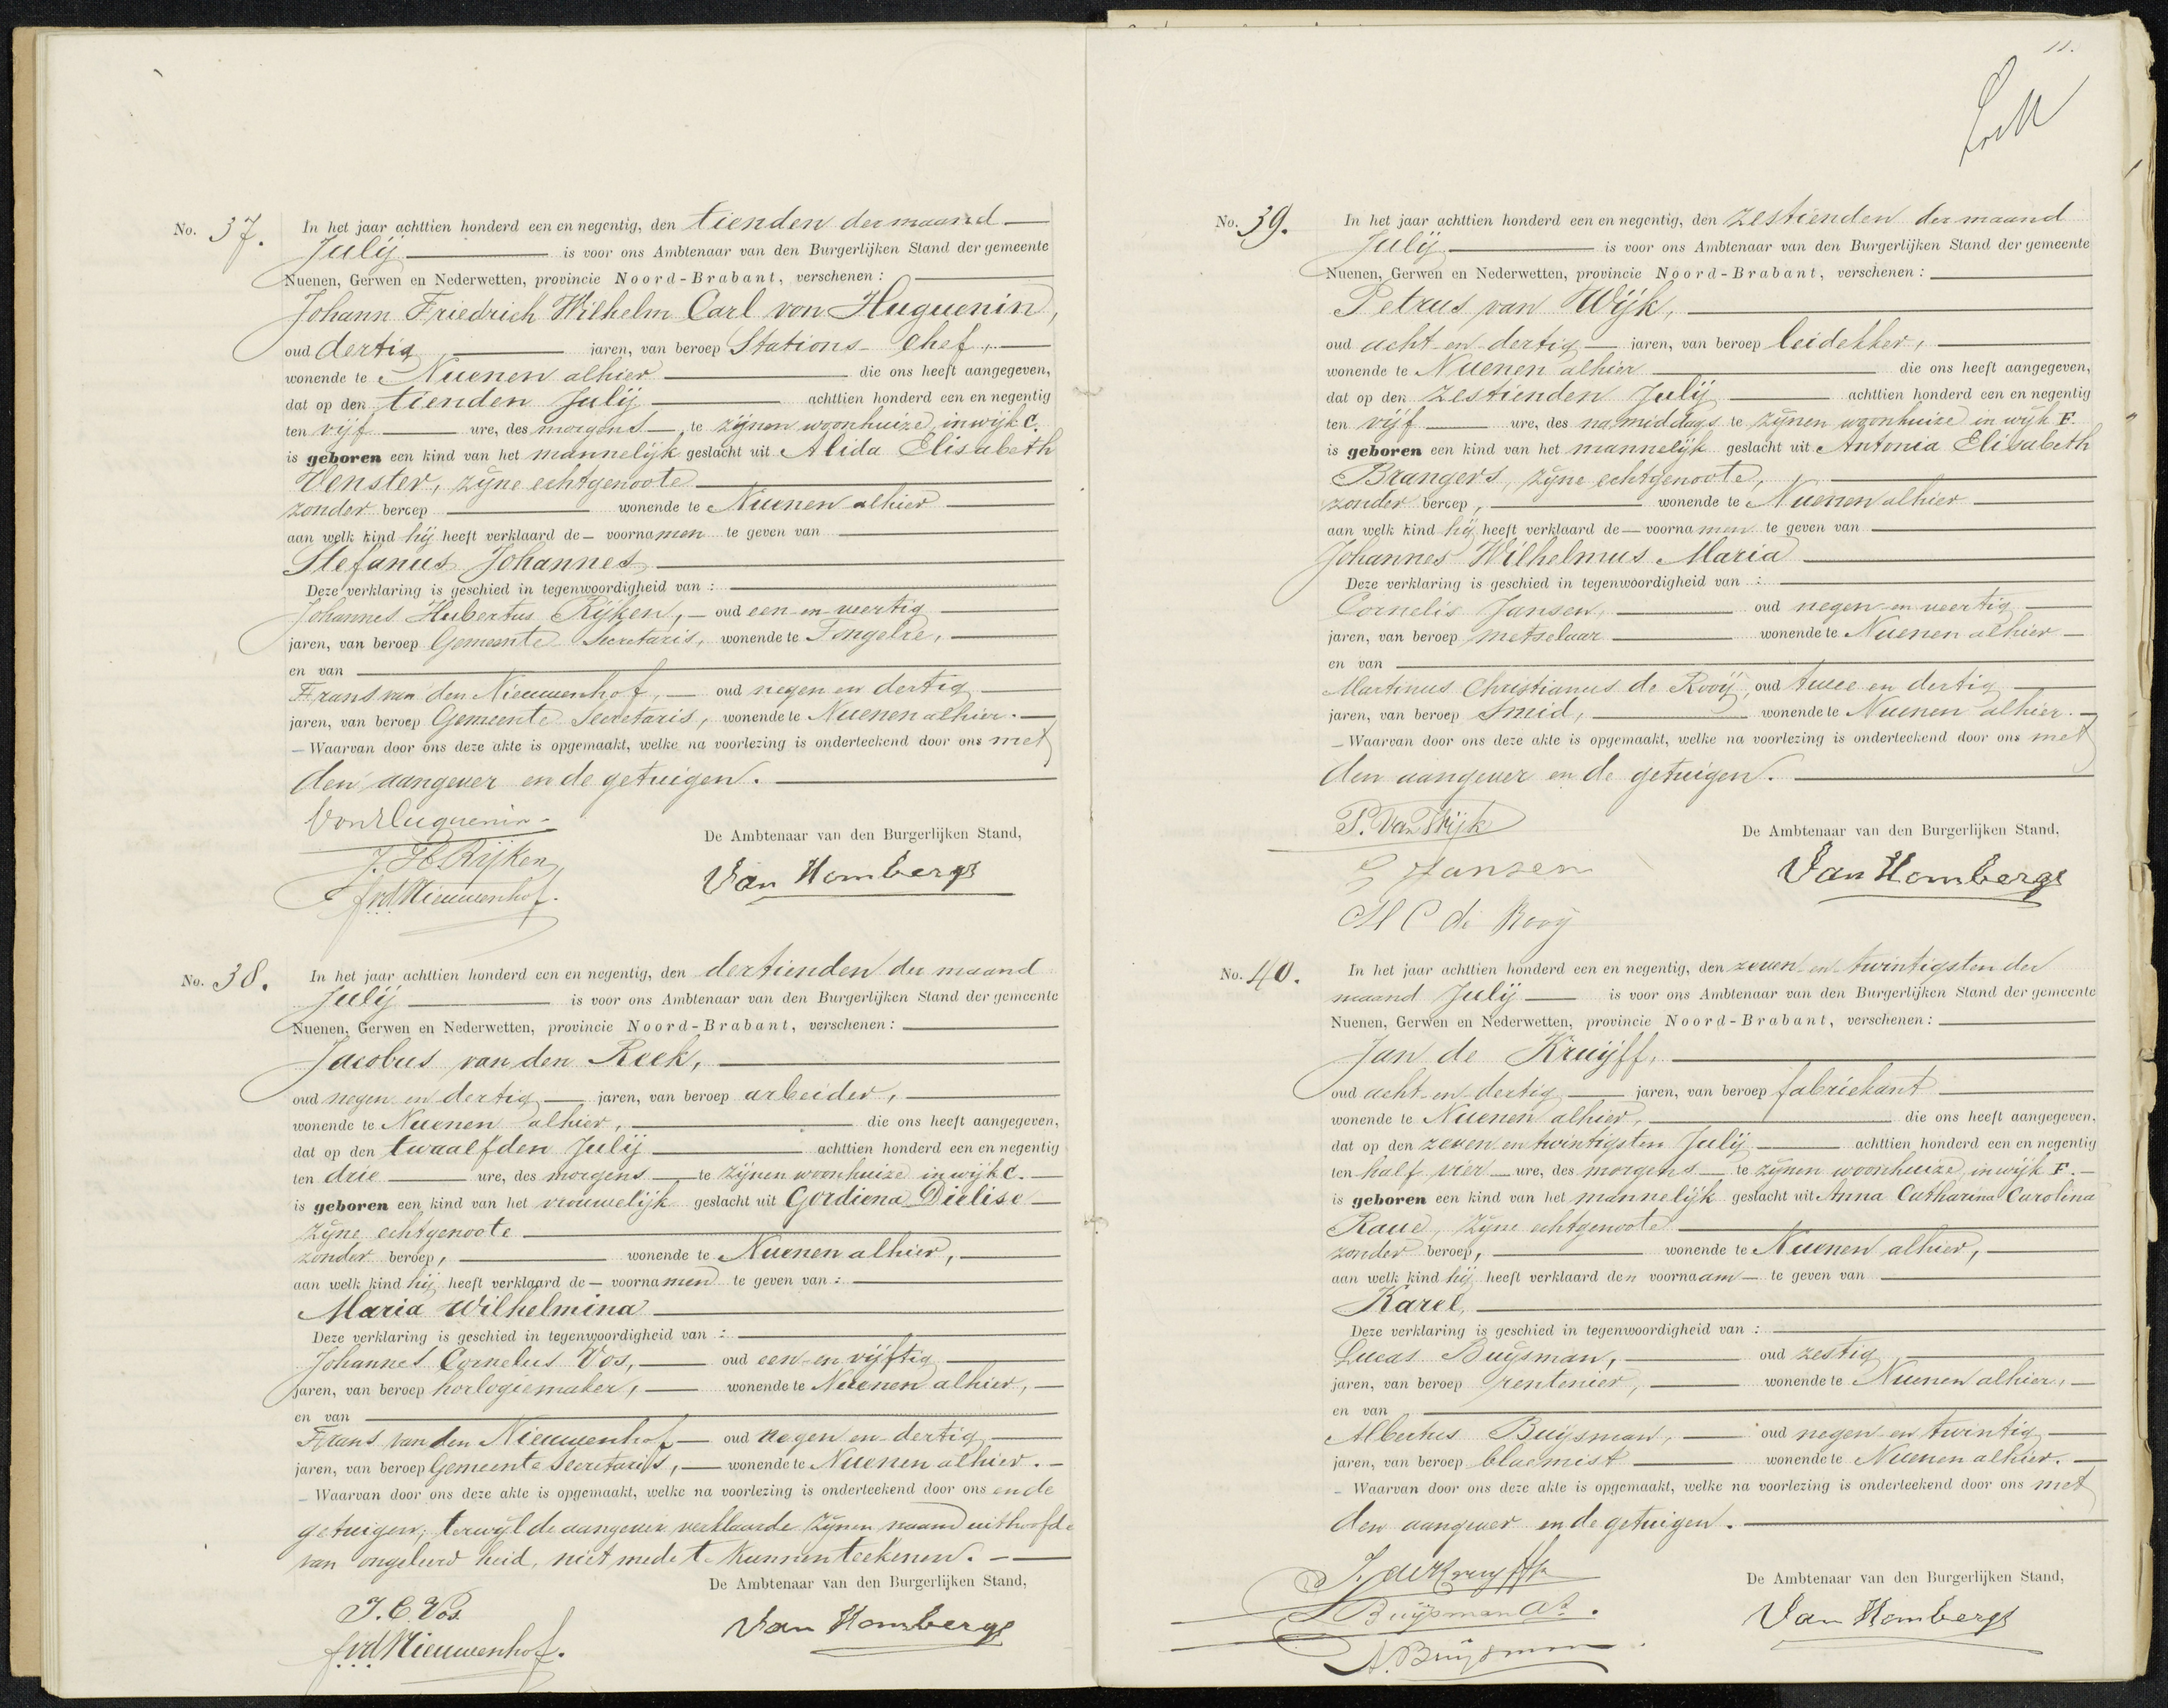 No. 37. In het jaar achttien honderd een en negentig, den tienden der maand
Julij is voor ons Ambtenaar van den Burgerlijken Stand der gemeente
Nuenen, Gerwen en Nederwetten, provincie Noord-Brabant, verschenen:
Johann Friedrich Wilhelm Carl von Huguenin,
oud dertig jaren, van beroep Stations-Chef,
wonende te Nuenen alhier die ons heeft aangegeven,
dat op den tienden Julij achttien honderd een en negentig
ten vijf ure, des morgens, te zijnen woonhuize, in wijk C.
is geboren een kind van het mannelijk geslacht uit Alida Elisabeth
Venster, zijne echtgenoote
zonder beroep wonende te Nuenen alhier
aan welk kind hij heeft verklaard de voornamen te geven van
Stefanus Johannes
Deze verklaring is geschied in tegenwoordigheid van:
Johannes Hubertus Rijken, oud een-en-veertig
jaren, van beroep Gemeente Secretaris, wonende te Tongelre,
en van
Frans van den Nieuwenhof, oud negen en dertig
jaren, van beroep Gemeente Secretaris, wonende te Nuenen alhier.
Waarvan door ons deze akte is opgemaakt, welke na voorlezing is onderteekend door ons met
den aangever en de getuigen.
Von Huguenin
De Ambtenaar van den Burgerlijken Stand,
J. H. Rijken
Van Hombergh
F.v.d. Nieuwenhof.
No. 38. In het jaar achttien honderd een en negentig, den dertienden der maand
Julij is voor ons Ambtenaar van den Burgerlijken Stand der gemeente
Nuenen, Gerwen en Nederwetten, provincie Noord-Brabant, verschenen:
Jacobus van den Reek,
oud negen en dertig jaren, van beroep arbeider,
wonende te Nuenen alhier, die ons heeft aangegeven,
dat op den twaalfden Julij achttien honderd een en negentig
ten drie ure, des morgens te zijnen woonhuize in wijk C.
is geboren een kind van het vrouwelijk geslacht uit Gordiena Dielise
zijne echtgenoote
zonder beroep, wonende te Nuenen alhier,
aan welk kind hij heeft verklaard de voornamen te geven van:
Maria Wilhelmina
Deze verklaring is geschied in tegenwoordigheid van:
Johannes Cornelus Vos, oud een-en-vijftig
jaren, van beroep horlogiemaker, wonende te Nuenen alhier,
en van
Frans van den Nieuwenhof oud negen en dertig
jaren, van beroep Gemeente Secretaris, wonende te Nuenen alhier.
Waarvan door ons deze akte is opgemaakt, welke na voorlezing is onderteekend door ons en de
getuigen, terwijl de aangever verklaarde zijnen naam uithoofde
van ongeleerdheid, niet mede te kunnen teekenen.
De Ambtenaar van den Burgerlijken Stand,
J. C. Vos
Van Hombergh
F.v.d. Nieuwenhof.
11.
No. 39. In het jaar achttien honderd een en negentig, den zestienden der maand
Julij is voor ons Ambtenaar van den Burgerlijken Stand der gemeente
Nuenen, Gerwen en Nederwetten, provincie Noord-Brabant, verschenen:
Petrus van Wijk,
oud acht-en-dertig jaren, van beroep leidekker,
wonende te Nuenen alhier die ons heeft aangegeven,
dat op den zestienden Julij achttien honderd een en negentig
ten vijf ure, des namiddags te zijnen woonhuize in wijk F.
is geboren een kind van het mannelijk geslacht uit Antonia Elisabeth
Brangers, zijne echtgenoote,
zonder beroep, wonende te Nuenen alhier
aan welk kind hij heeft verklaard de voornamen te geven van
Johannes Wilhelmus Maria
Deze verklaring is geschied in tegenwoordigheid van:
Cornelis Jansen, oud negen-en-veertig
jaren, van beroep metselaar wonende te Nuenen alhier
en van
Martinus Christianus de Rooij, oud twee en dertig
jaren, van beroep Smid, wonende te Nuenen alhier.
Waarvan door ons deze akte is opgemaakt, welke na voorlezing is onderteekend door ons met
den aangever en de getuigen.
P. Van Wijk
De Ambtenaar van den Burgerlijken Stand,
C Jansen
Van Hombergh
M C de Rooij
No. 40. In het jaar achttien honderd een en negentig, den zeven-en-twintigsten der
maand Julij is voor ons Ambtenaar van den Burgerlijken Stand der gemeente
Nuenen, Gerwen en Nederwetten, provincie Noord-Brabant, verschenen:
Jan de Kruijff,
oud acht-en-dertig jaren, van beroep fabriekant
wonende te Nuenen alhier, die ons heeft aangegeven,
dat op den zeven en twintigsten Julij achttien honderd een en negentig
ten half vier ure, des morgens te zijnen woonhuize, in wijk F.
is geboren een kind van het mannelijk geslacht uit Anna Catharina Carolina
Raue, zijne echtgenoote
zonder beroep, wonende te Nuenen alhier,
aan welk kind hij heeft verklaard den voornaam te geven van
Karel,
Deze verklaring is geschied in tegenwoordigheid van:
Lucas Buijsman, oud zestig
jaren, van beroep rentenier, wonende te Nuenen alhier,
en van
Albertus Buijsman, oud negen-en-twintig
jaren, van beroep bloemist wonende te Nuenen alhier.
Waarvan door ons deze akte is opgemaakt, welke na voorlezing is onderteekend door ons met
den aangever en de getuigen.
J. de Kruyff
De Ambtenaar van den Burgerlijken Stand,
L Buijsman
Van Hombergh
A. Buijsman